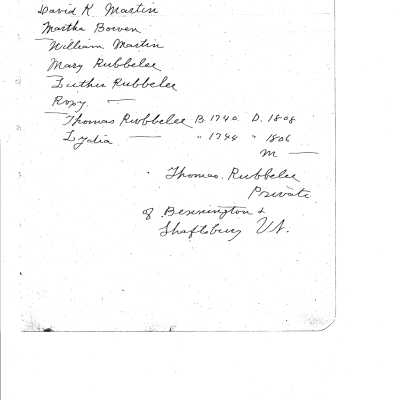 David K Martin
Martha Bowen
William Martin
Mary Rubbelee
Luther Rubbelee
Roxy —
Thomas Rubbelee B. 1740 D. 1808
Lydia — " 1744 " 1806
M —
Thomas. Rubbelee
Private
of Bennington &
Shaftsbury Vt.